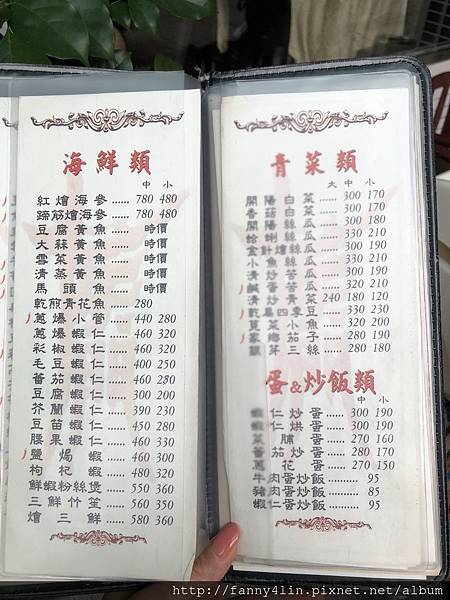 海鮮類
中 小
紅燴海參...... 780 480
蹄筋燴海參... 780 480
豆腐黃魚...... 時價
大蒜黃魚...... 時價
雪菜黃魚...... 時價
清蒸黃魚...... 時價
馬頭魚...... 時價
乾煎青花魚... 280
蔥爆小管...... 440 280
蔥爆蝦仁...... 460 320
彩椒蝦仁...... 460 320
毛豆蝦仁...... 460 320
蕃茄蝦仁...... 460 280
豆腐蝦仁...... 460 290
芥蘭蝦仁...... 390 230
豆苗蝦仁...... 450 280
腰果蝦仁...... 460 330
鹽焗蝦...... 460 300
枸杞蝦...... 480 320
鮮蝦粉絲煲... 550 360
三鮮竹笙...... 560 350
燴三鮮...... 580 360
青菜類
大 中 小
開陽白菜...... 300 170
香菇白菜...... 300 170
開陽絲瓜...... 300 180
蛤蜊絲瓜...... 330 210
金針燴絲瓜... 330 210
小魚苦瓜...... 330 210
清炒苦瓜...... 300 190
鹹蛋苦瓜...... 330 210
清炒青菜 240 180 120
乾扁四季豆... 310 190
莧菜小魚...... 320 210
家鄉茄子...... 320 200
銀芽三絲...... 280 180
蛋&炒飯類
中 小
蝦仁炒蛋...... 300 190
蝦仁烘蛋...... 300 190
菜脯蛋...... 270 160
番茄炒蛋...... 280 170
蔥花蛋...... 270 150
牛肉蛋炒飯......... 95
豬肉蛋炒飯......... 85
蝦仁蛋炒飯......... 95
http://fanny4lin.pixnet.net/album